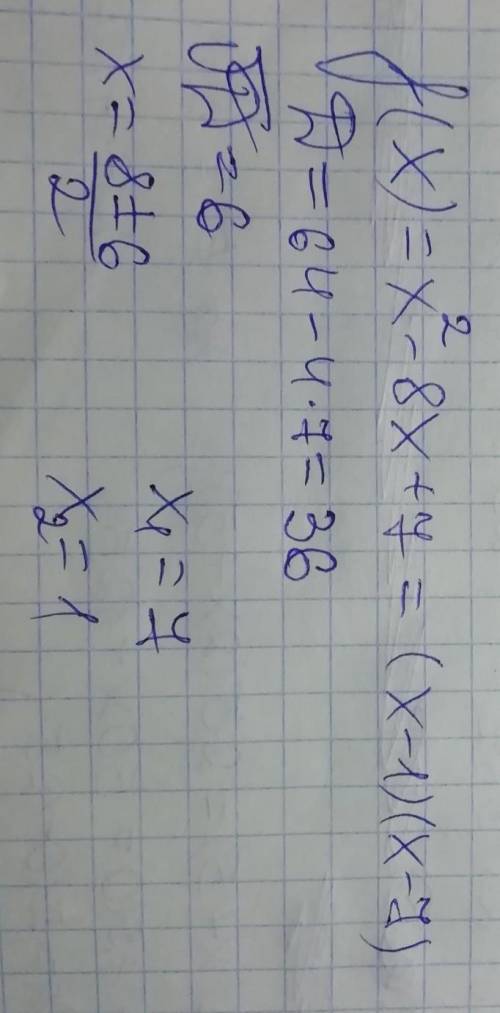 f(x) = x² - 8x + 7 = (x-1)(x-7)
D = 64 - 4·7 = 36
√D = 6
x = (8±6)/2
x₁ = 7
x₂ = 1